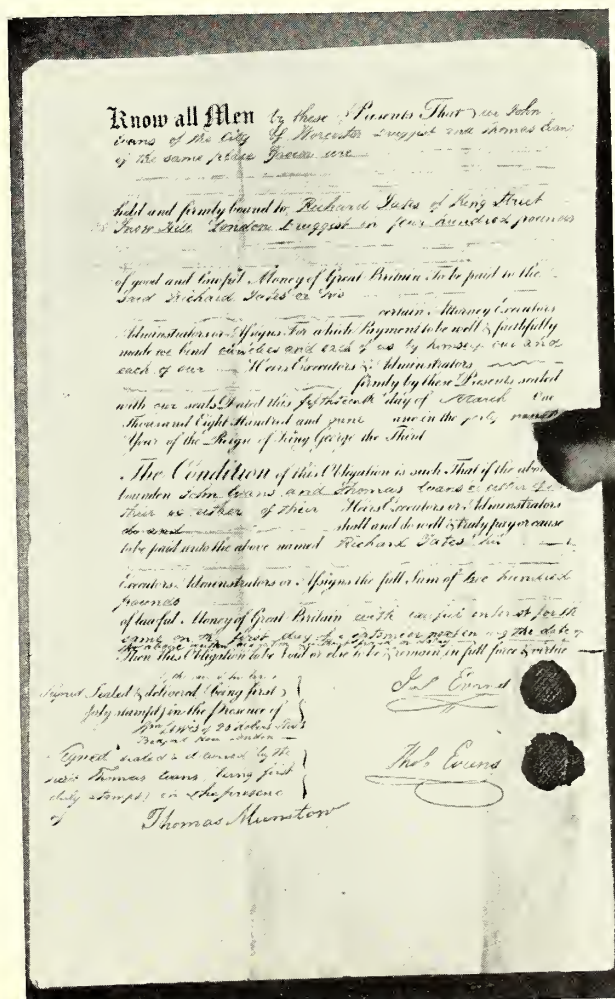 Know all Men by these Presents That we John
Evans of the City of Worcester Druggist and Thomas Evans
of the same place Grocer are
held and firmly bound to Richard Yates of King Street
Snow Hill London Druggist in four hundred pounds
of good and lawful Money of Great Britain To be paid to the
said Richard Yates or his
certain Attorney Executors
Administrators or Assigns For which Payment to be well & faithfully
made we bind ourselves and each of us by himself our and
each of our Heirs Executors & Administrators
firmly by these Presents sealed
with our seals Dated this fifteenth day of March One
Thousand Eight Hundred and nine and in the forty
Year of the Reign of King George the Third
The Condition of this Obligation is such That if the above
bounden John Evans and Thomas Evans or either of
their or either of their Heirs Executors or Administrators
do and shall and do well & truly pay or cause
to be paid unto the above named Richard Yates his
Executors Administrators or Assigns the full Sum of two hundred
pounds
of lawful Money of Great Britain with lawful interest for the
same on the first day of next the date of
Then this Obligation to be Void or else to be & remain in full force & virtue
Signed Sealed & delivered (being first
duly stampd) in the presence of
Signed sealed & delivered by the
said Thomas Evans being first
duly stampd) in the presence
of Thomas Munstow
Jno Evans
Thos Evans